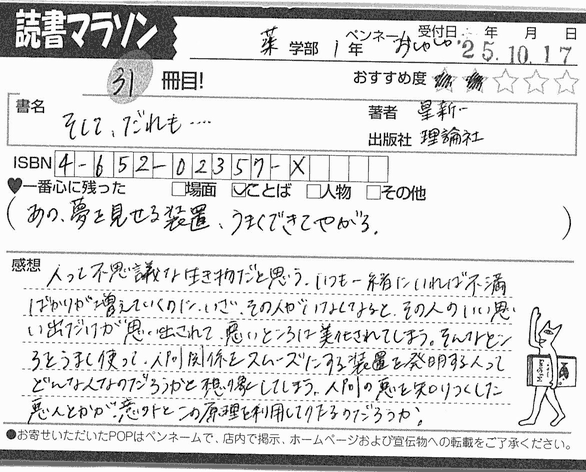 読書マラソン
薬 学部 1年 ペンネーム おしゃしゃ 受付日 '25.10.17 年 月 日
31 冊目! おすすめ度 ★★☆☆☆
書名 そして、だれも…… 著者 星新一
出版社 理論社
ISBN 4-652-02357-X
♥一番心に残った □場面 ☑ことば □人物 □その他
(あの、夢を見せる装置、うまくできてやがる。)
感想 人って不思議な生き物だと思う。いつも一緒にいれば不満
ばかりが増えていくのに、いざ、その人がいなくなると、その人のいい思
い出だけが思い出されて、悪いところは美化されてしまう。そんなとこ
ろをうまく使って、人間関係をスムーズにする装置を発明する人って
どんな人なのだろうかと想像してしまう。人間の悪を知りつくした
悪人とかが、意外とこの原理を利用してりたるのだろうか。
●お寄せいただいたPOPはペンネームで、店内で掲示、ホームページおよび宣伝物への転載をご了承ください。